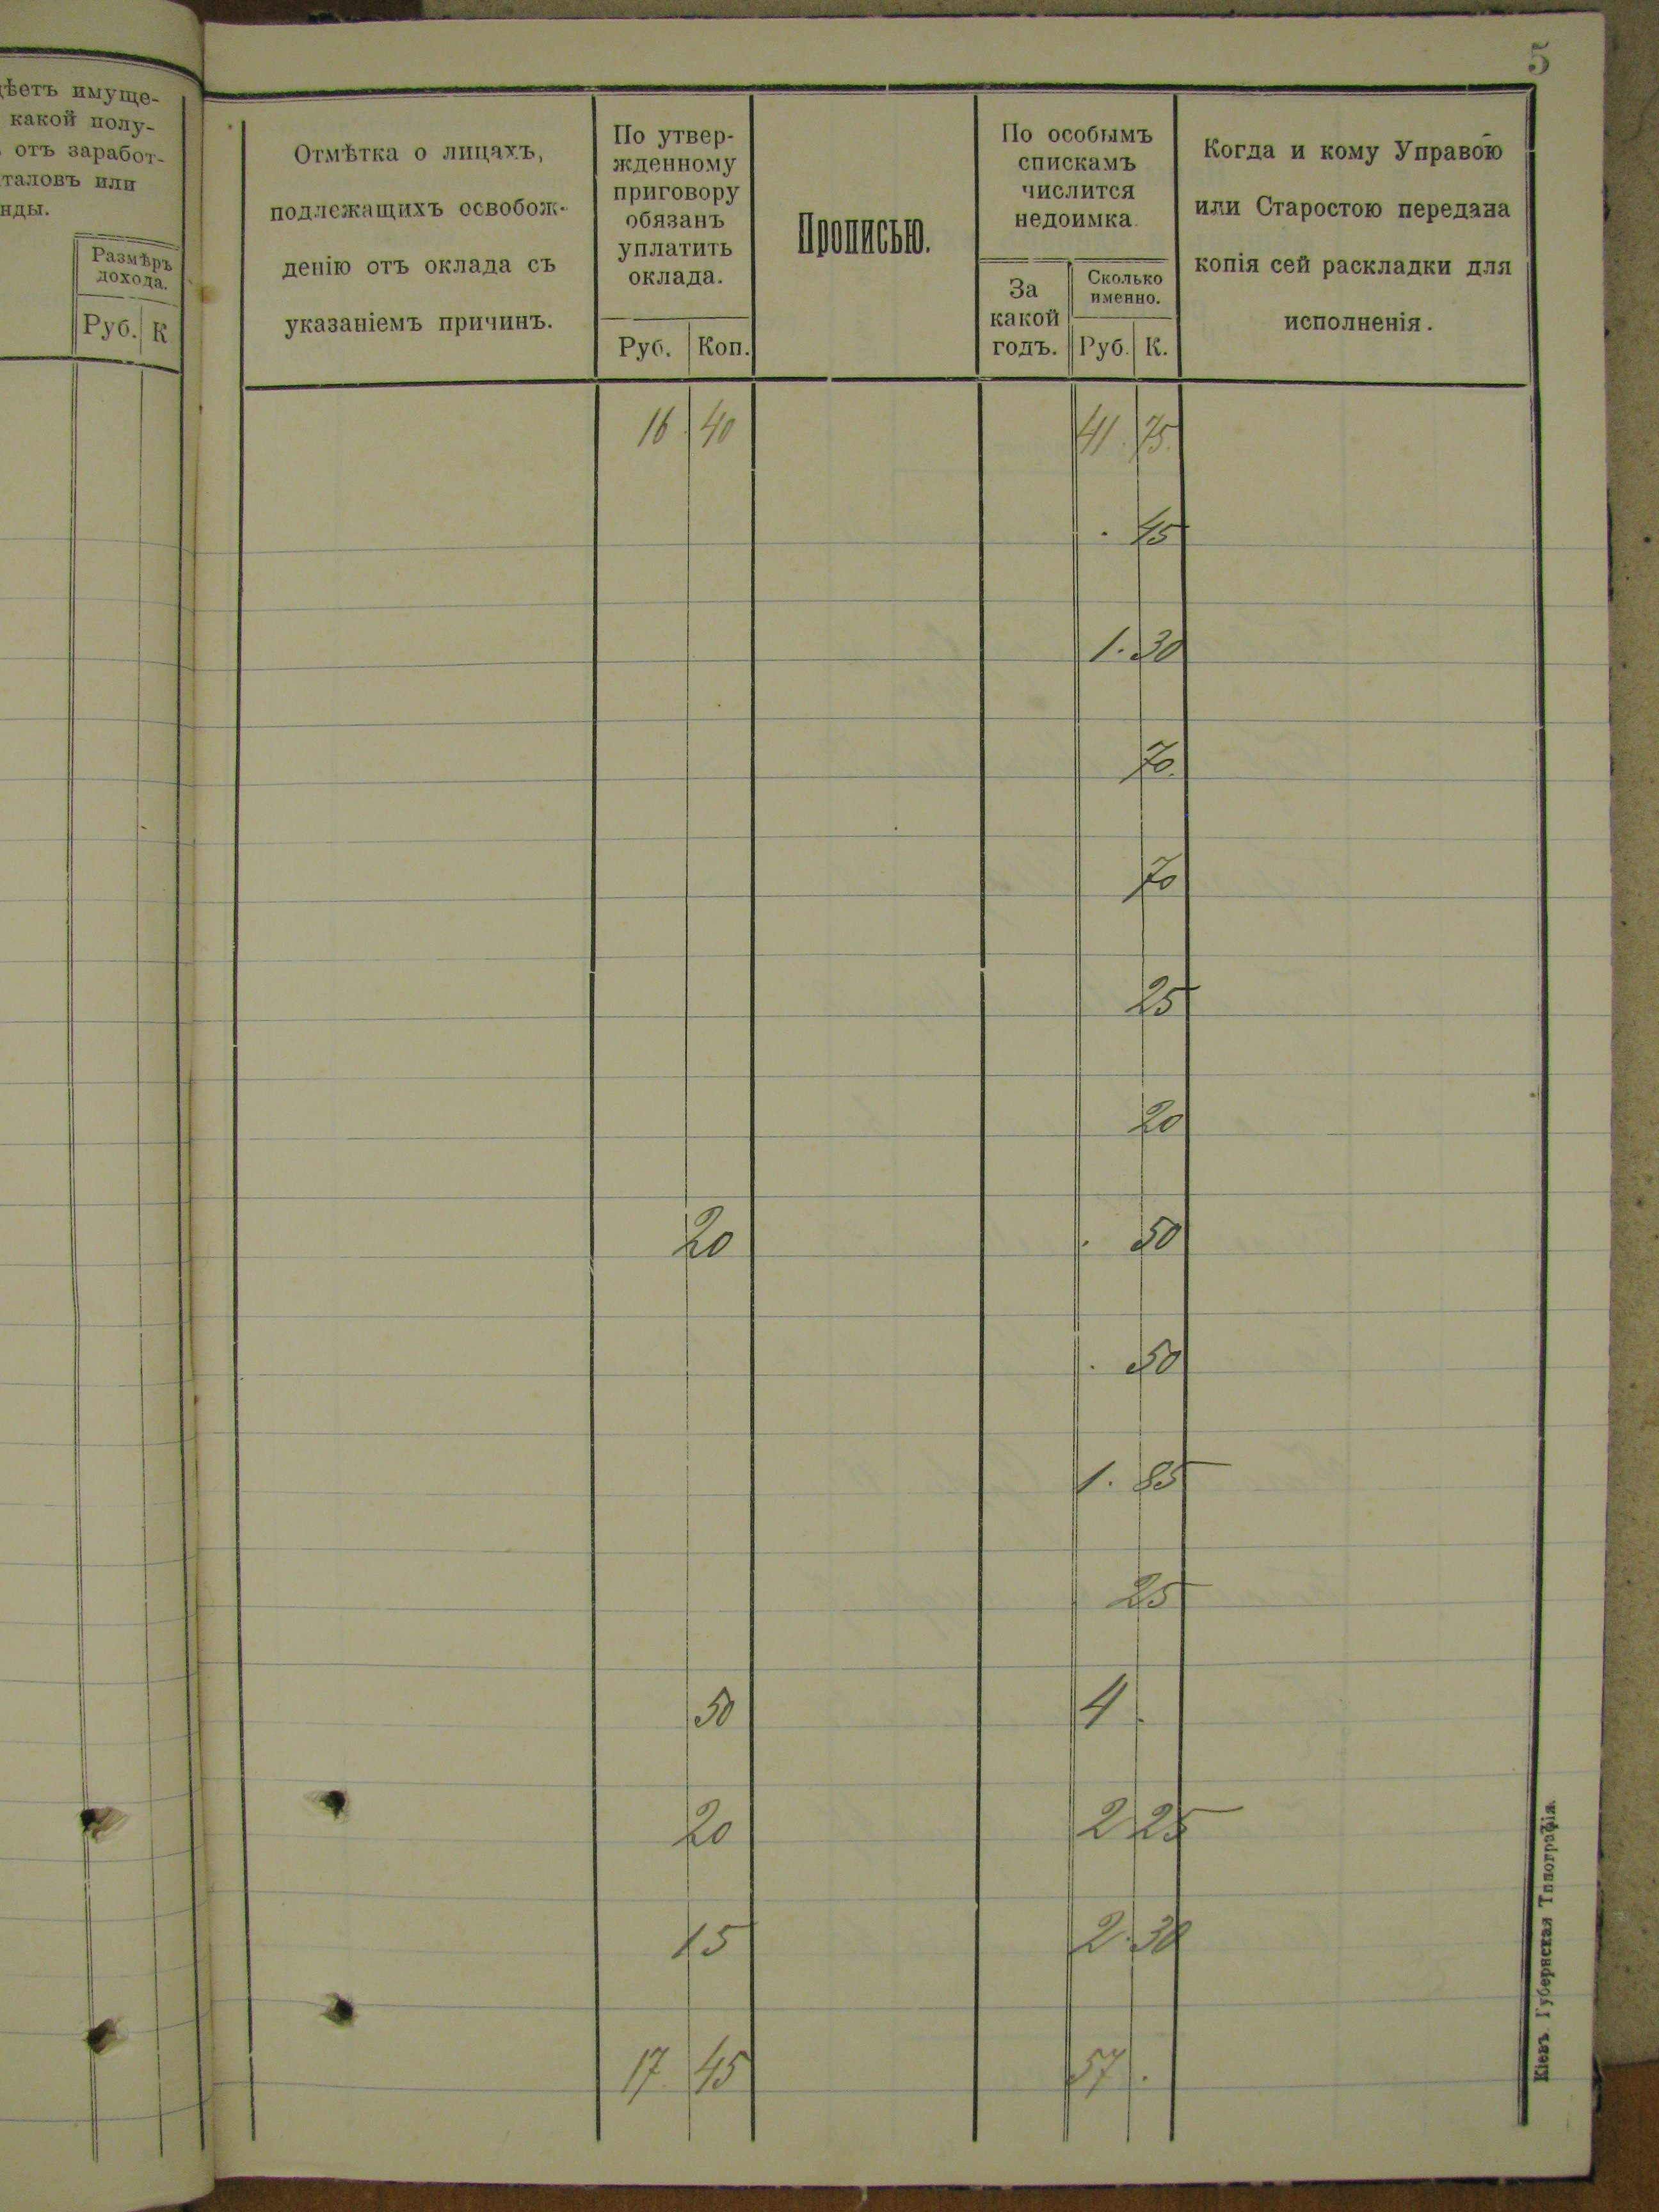 5
ѣетъ имуще-
какой полу-
отъ заработ-
таловъ или
нды.
Размѣръ
дохода.
Руб. К
Отмѣтка о лицахъ,
подлежащихъ освобож-
денію отъ оклада съ
указаніемъ причинъ.
По утвер-
жденному
приговору
обязанъ
уплатить
оклада.
Руб. Коп.
Прописью.
По особымъ
спискамъ
числится
недоимка.
За
какой
годъ.
Сколько
именно.
Руб. К.
Когда и кому Управою
или Старостою передана
копія сей раскладки для
исполненія.
16. 40 41. 75.
. 45
1. 30
70.
70
25
20
20 . 50
. 50
1. 85
25
50 4 .
20 2 25
15 2. 30
17. 45 57 .
Кіевъ. Губернская Типографія.